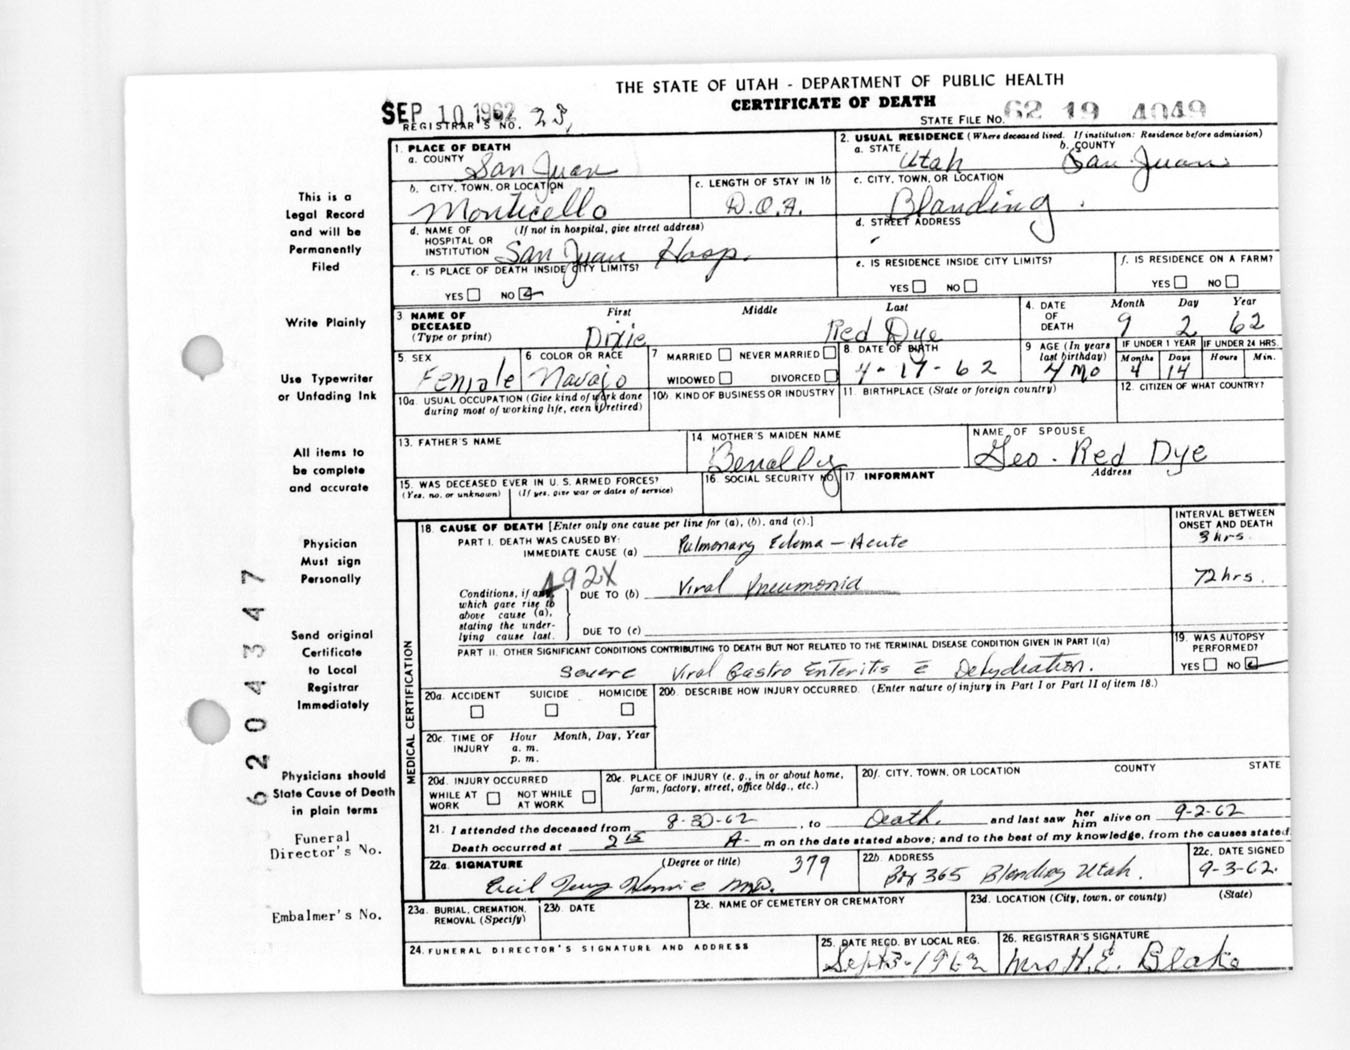 THE STATE OF UTAH - DEPARTMENT OF PUBLIC HEALTH
CERTIFICATE OF DEATH
SEP 10 1962
REGISTRAR'S NO. 23,
STATE FILE NO. 62 19 4049
1. PLACE OF DEATH
a. COUNTY San Juan
2. USUAL RESIDENCE (Where deceased lived. If institution: Residence before admission)
a. STATE Utah b. COUNTY San Juan
b. CITY, TOWN, OR LOCATION Monticello
c. LENGTH OF STAY IN 1b D.O.A.
c. CITY, TOWN, OR LOCATION Blanding.
d. NAME OF HOSPITAL OR INSTITUTION (If not in hospital, give street address) San Juan Hosp.
d. STREET ADDRESS
e. IS PLACE OF DEATH INSIDE CITY LIMITS?
YES NO
e. IS RESIDENCE INSIDE CITY LIMITS?
YES NO
f. IS RESIDENCE ON A FARM?
YES NO
3 NAME OF DECEASED (Type or print)
First Middle Last
Dixie Red Dye
4. DATE OF DEATH
Month Day Year
9 2 62
5 SEX Female
6 COLOR OR RACE Navajo
7 MARRIED NEVER MARRIED
WIDOWED DIVORCED
8. DATE OF BIRTH 4-17-62
9 AGE (In years last birthday) 4 Mo
IF UNDER 1 YEAR IF UNDER 24 HRS.
Months Days Hours Min.
4 14
10a. USUAL OCCUPATION (Give kind of work done during most of working life, even if retired)
10b. KIND OF BUSINESS OR INDUSTRY
11. BIRTHPLACE (State or foreign country)
12. CITIZEN OF WHAT COUNTRY?
13. FATHER'S NAME
14 MOTHER'S MAIDEN NAME Benally
NAME OF SPOUSE Geo. Red Dye
15. WAS DECEASED EVER IN U. S. ARMED FORCES?
(Yes, no, or unknown) (If yes, give war or dates of service)
16 SOCIAL SECURITY NO.
17 INFORMANT Address
18. CAUSE OF DEATH [Enter only one cause per line for (a), (b), and (c).]
INTERVAL BETWEEN ONSET AND DEATH
PART I. DEATH WAS CAUSED BY:
IMMEDIATE CAUSE (a) Pulmonary Edema - Acute 3 hrs
492X
Conditions, if any, which gave rise to above cause (a), stating the underlying cause last.
DUE TO (b) Viral Pneumonia 72 hrs.
DUE TO (c)
PART II. OTHER SIGNIFICANT CONDITIONS CONTRIBUTING TO DEATH BUT NOT RELATED TO THE TERMINAL DISEASE CONDITION GIVEN IN PART I(a)
Severe Viral Gastro Enteritis c̄ Dehydration.
19. WAS AUTOPSY PERFORMED?
YES NO
20a. ACCIDENT SUICIDE HOMICIDE
20b. DESCRIBE HOW INJURY OCCURRED. (Enter nature of injury in Part I or Part II of item 18.)
20c. TIME OF INJURY Hour Month, Day, Year
a. m.
p. m.
20d. INJURY OCCURRED
WHILE AT WORK NOT WHILE AT WORK
20e. PLACE OF INJURY (e. g., in or about home, farm, factory, street, office bldg., etc.)
20f. CITY, TOWN, OR LOCATION COUNTY STATE
21. I attended the deceased from 8-30-62, to Death. and last saw her him alive on 9-2-62
Death occurred at 2 15 A- m on the date stated above; and to the best of my knowledge, from the causes stated
22a. SIGNATURE (Degree or title) 379
M.D.
22b. ADDRESS Box 365 Blanding Utah.
22c. DATE SIGNED 9-3-62.
23a. BURIAL, CREMATION, REMOVAL (Specify)
23b. DATE
23c. NAME OF CEMETERY OR CREMATORY
23d. LOCATION (City, town, or county) (State)
24. FUNERAL DIRECTOR'S SIGNATURE AND ADDRESS
25. DATE RECD. BY LOCAL REG. Sept 3-1962
26. REGISTRAR'S SIGNATURE Mrs H. E. Blake
MEDICAL CERTIFICATION
This is a
Legal Record
and will be
Permanently
Filed
Write Plainly
Use Typewriter
or Unfading Ink
All items to
be complete
and accurate
Physician
Must sign
Personally
Send original
Certificate
to Local
Registrar
Immediately
Physicians should
State Cause of Death
in plain terms
Funeral
Director's No.
Embalmer's No.
62043347